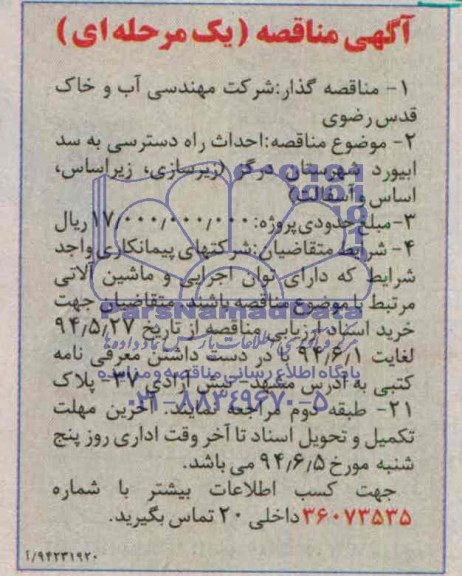 آگهی مناقصه (یک مرحله ای)
۱- مناقصه گذار:شرکت مهندسی آب و خاک
قدس رضوی
۲- موضوع مناقصه:احداث راه دسترسی به سد
ابیورد شهرستان درگز (زیرسازی، زیراساس،
اساس و آسفالت)
۳-مبلغ حدودی پروژه: ۱۷/۰۰۰/۰۰۰/۰۰۰ ریال
۴- شرایط متقاضیان:شرکتهای پیمانکاری واجد
شرایط که دارای توان اجرایی و ماشین آلاتی
مرتبط با موضوع مناقصه باشند، متقاضیان جهت
ParsNamadData
خرید اسناد ارزیابی مناقصه از تاریخ ۹۴/۵/۲۷
لغایت ۹۴/۶/۱ با در دست داشتن معرفی نامه
پایگاه اطلاع رسانی مناقصه و مزایده
کتبی به آدرس مشهد- نبش آزادی ۳۷- پلاک
۰۲۱-۸۸۳۴۹۶۷۰-۵
۲۱- طبقه دوم مراجعه نمایند. آخرین مهلت
تکمیل و تحویل اسناد تا آخر وقت اداری روز پنج
شنبه مورخ ۹۴/۶/۵ می باشد.
جهت کسب اطلاعات بیشتر با شماره
۳۶۰۷۳۵۳۵ داخلی ۲۰ تماس بگیرید.
۹۴۲۳۱۹۲۰/آ